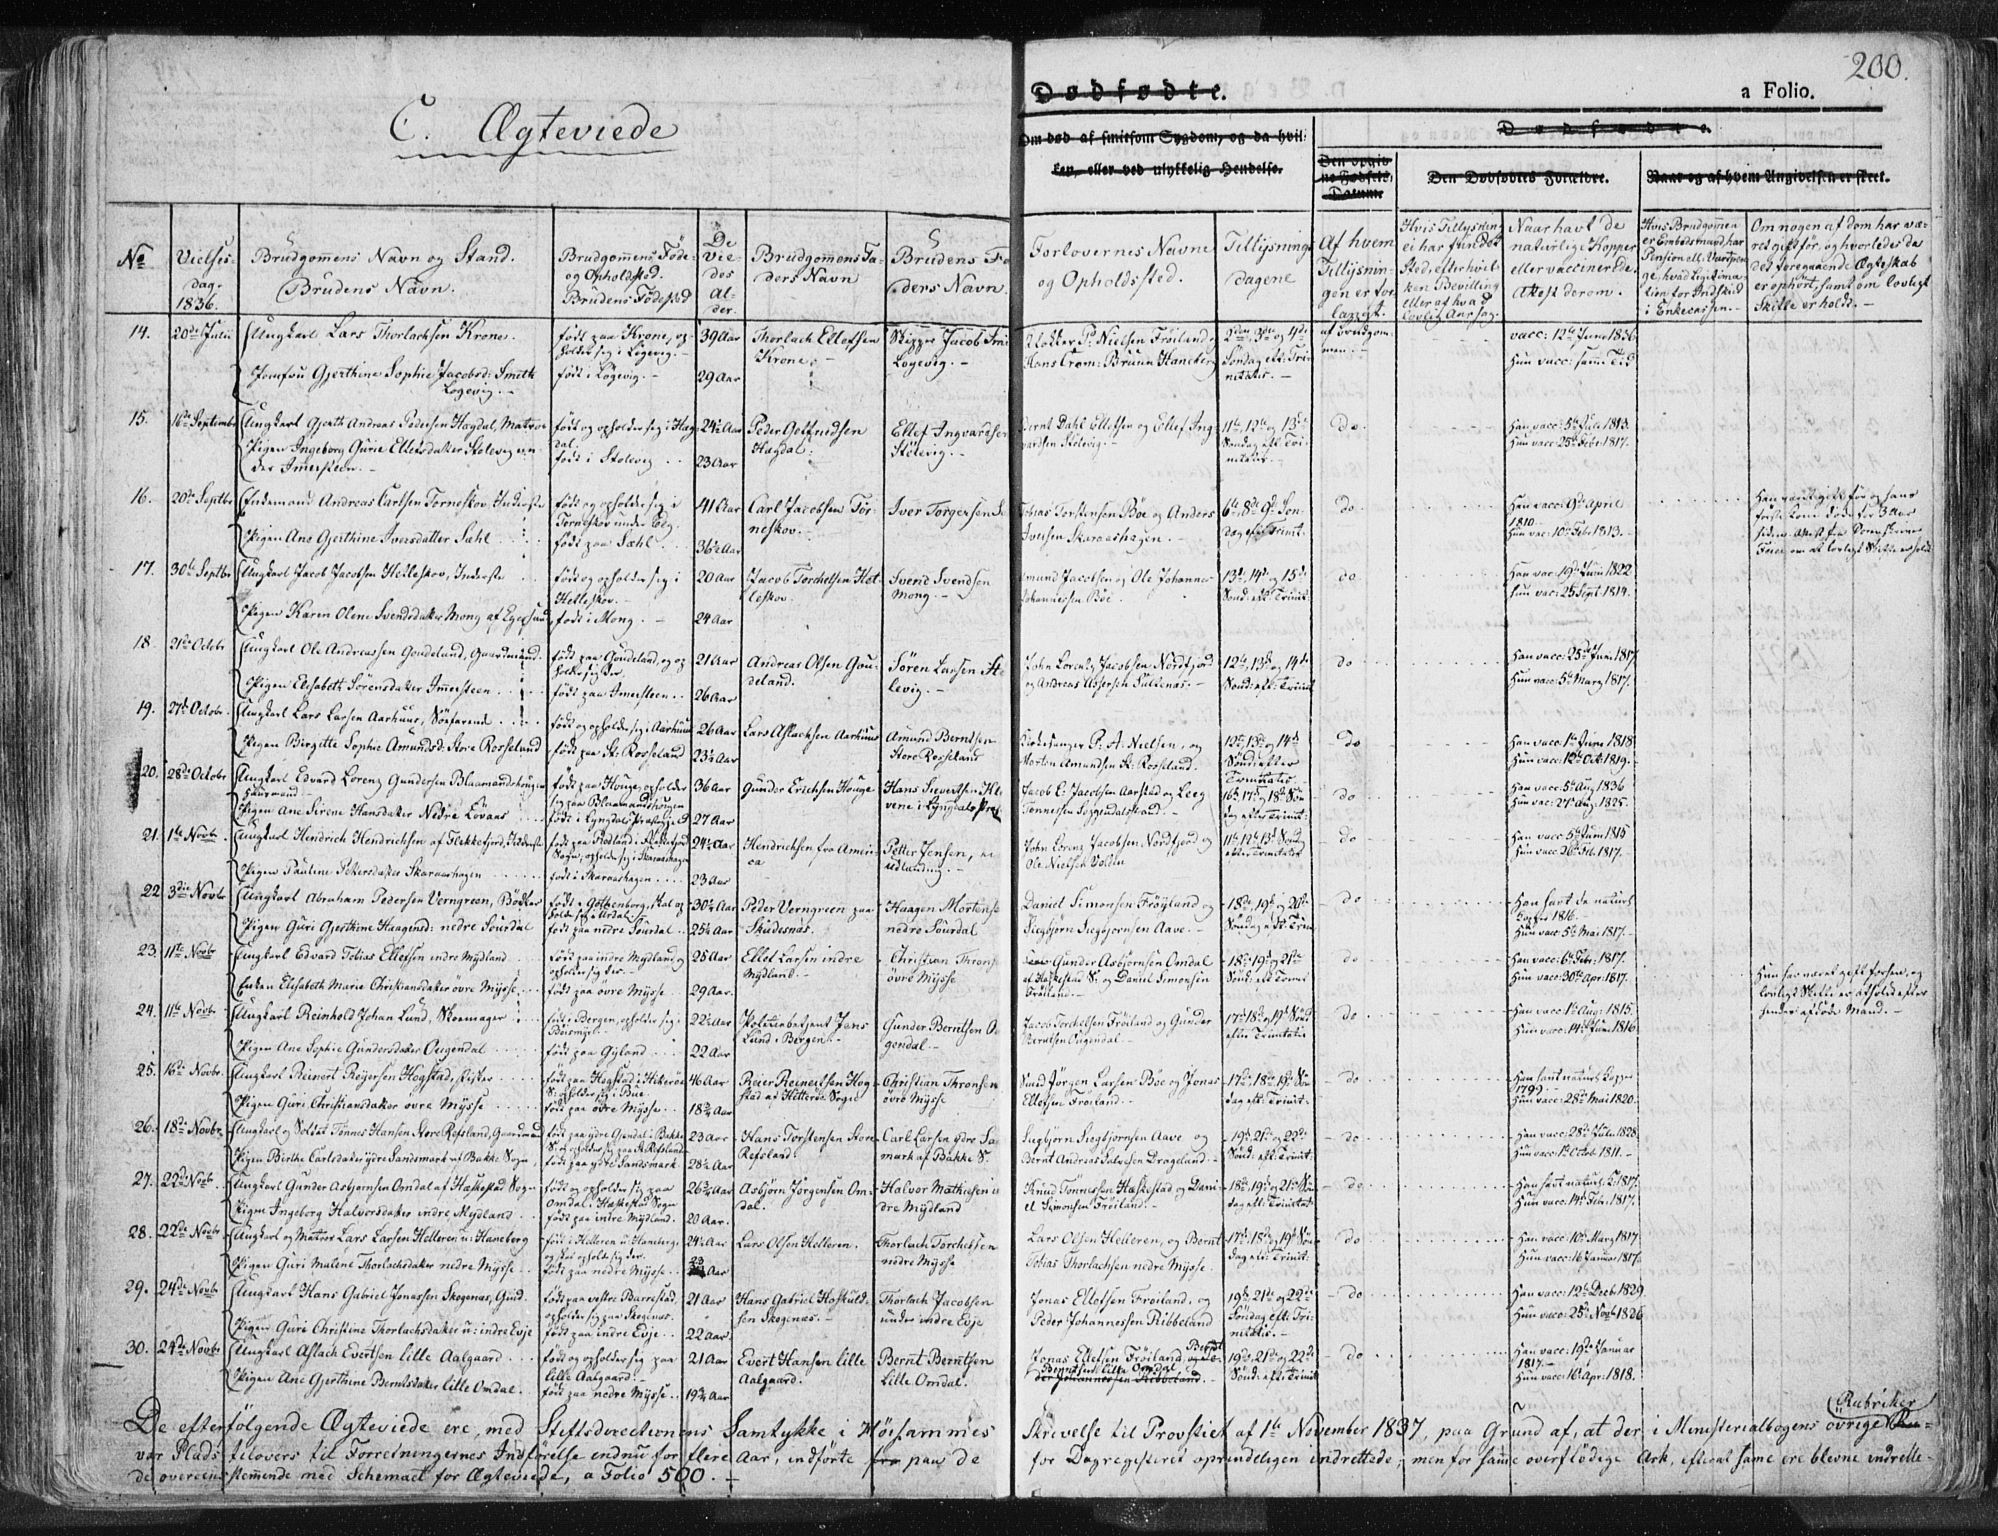 200.
Dødfødte.
a Folio.
C. Ægteviede
Om død af smitsom Sygdom, og da hvil-
ken, eller ved ulykkelig Hendelse.
Dødfødte.
Den opgiv-
ne Fødsels
Datum.
Den Dødfødtes Forældre.
Naar og af hvem Angivelsen er skeet.
No
Vielses-
dag.
1836.
Brudgommens Navn og Stand.
Brudens Navn.
Brudgommens Føde-
og Opholdssted.
Brudens Fødested
De
Vie-
des
Al-
der.
Brudgommens Fa-
ders Navn
Brudens Fa-
ders Navn.
Forlovernes Navne
og Opholdssted.
Tillysnings
dagene
Af hvem
Tillysnin-
gen er for-
langt.
Hvis Tillysning
ei har fundet
Sted, efter hvil-
ken Bevilling
eller af hvad
lovlig Aarsag.
Naar havt de
naturlige Kopper
eller vaccinerede.
Attest derom.
Hvis Brudgommen
er Embedsmand, har
Pension ell. Vartpen-
ge, hvad Legitima-
tion for Indskud
i Enkecassen.
Om nogen af dem har væ-
ret gift før, og hvorledes da
det foregaaende Ægteskab
er ophørt, samt om lovligt
Skifte er holdt.
14. 20de Julii Ungkarl Lars Thorlachsen Krone.
født paa Krone, op-
holder sig i Løgevig.
39 Aar
Thorlach Ellefsen
Krone.
Skipper Jacob Smi
Løgevig.
Klokker P. Nielsen Frøiland og
Hans Crom: Bruun Haneberg
2den, 3die og 4de
Søndag eft: Tri-
nitatis.
af Brudgom-
men.
vacc: 12te Juni 1836
Hun vacc: sam: Tid
Jomfru Gjerthine Sophie Jacobsd: Smith
Løgevig.
født i Løgevig.
29 Aar
15. 16de Septembr Ungkarl Gjerth Andreas Pedersen Hægdal, Matros
født og opholder sig i Hæg-
dal.
24½ Aar
Peder Gotfridsen
Hægdal.
Ellef Ingvardsen
Stølevig.
Bernt Dahl Ellefsen og Ellef Ing-
vardsen Stølevig.
11te, 12te og 13de
Søndag eft: Tri-
nitatis.
do.
Han vacc: 5te Juli 1813.
Hun vacc: 25de Febr. 1817.
Pigen Ingeborg Gurie Ellefsdatter Stølevig un-
der Imersteen.
født i Stølevig
23 Aar
16. 20de Septbr Enkemand Andreas Carlsen Torneskov, Inderste
født og opholder sig i
Torneskov under Eeg.
41 Aar
Carl Jacobsen Tor-
neskov.
Iver Torgersen
Tobias Torstensen Bøe og Anders
Iversen Skaraashagen.
6te, 8de, 9de Søn-
dag efter Trinit.
do
Han vacc: 9de April
1810.
Hun vac: 10de Febr 1813.
Pigen Ane Gjerthine Iversdatter Sæhl.
født paa Sæhl.
36½ Aar
17. 30te Septbr Ungkarl Jacob Jacobsen Helleskov, Inderste
født og opholder sig i
Helleskov.
20 Aar
Jacob Torchelsen Hel-
leskov.
Sverid Svendsen
Mong.
Amund Jacobsen og Ole Johannes
Johannessen Bøe.
13de, 14de og 15de
Sønd: eft: Trinit.
do
Han vac: 19de Juni 1822
Hun vac: 25 Sept: 1814.
Pigen Karen Olene Svendsdatter Mong af Egersund
født i Mong.
24 Aar
18. 21de Octobr Ungkarl Ole Andreassen Goudeland, Gaardmand.
født paa Goudeland, og op-
holder sig der.
21 Aar
Andreas Olsen Gou-
deland.
Søren Larsen Stø
levig.
John Lorentz Jacobsen Nordfjord
og Andreas Assersen Sullenas.
12te, 13de og 14de
Sønd: eft: Trinit
do
Han vacc: 25de Juni 1817.
Hun vacc: 5te Marz 1817.
Pigen Elisabeth Sørensdatter Immersteen
født paa Imersteen.
26 Aar
19. 27de Octobr. Ungkarl Lars Larsen Aarhuus, Søfarend
født og opholder sig i Aarhuus
26 Aar
Lars Aslachsen Aarhuus
Amund Berntsen
Store Rosseland
Kirkesanger P. A. Nielsen, og
Morten Amundsen St: Rosseland.
12te, 13de og 14de
Sønd: efter
Trinitatis
do
Han vacc: 1te Juni 1818
Hun vacc: 18de Oct: 1819.
Pigen Birgitte Sophie Amundsd: Store Rosseland
født paa St: Rosseland
23½ Aar
20. 28de Octobr Ungkarl Edvard Lorenz Gundersen Blaamandshougen
født paa Houge, opholder
sig paa Blaamandshougen
36 Aar
Gunder Erichsen Houge
Hans Sivertsen
Jacob E. Jacobsen Aarstad og Leeg
Tønnesen Soggendalstrand.
16de, 17de og 18de Søn-
dag efter Trinit.
do
Han vacc: 5te Aug 1836
Hun vac: 27de Aug: 1825.
Pigen Ane Sirene Hansdatter Nedre Løvaas
født i Lyngdals Præstegjeld
27 Aar
21. 1te Novbr Ungkarl Hendrich Hendrichsen af Flekkefjord, Inderste
24½ Aar
Hendrichsen fra Ameri-
ca
Petter Jensen,
John Lorenz Jacobsen Nordfjord og
Ole Nielsen Volden
11te, 12te, 13de Sønd
efter Trinitatis
do
Han vacc: 5te Juni 1815
Hun vacc: 26de Feb. 1817.
Pigen Pauline Pettersdatter Skaraashagen
født i Skaraashagen
23 Aar
22 3die Novbr Ungkarl Abraham Pedersen Verngreen, Bødker
født i Gothenborg, skal op-
holde sig i Urdal
30½ Aar
Peder Verngreen paa
Skudesnæs.
Haagen Mortense
nedre Sourdal
Daniel Simonsen Frøyland og
Siegbjørn Siegbjørnsen Aave.
18de, 19de og 20de
Søndag eft: Trin
do
Han havt de naturl:
Kopper 1816.
Hun vacc: 5te Mai 1817.
Pigen Guri Gjerthine Haagensd: nedre Sourdal
født paa nedre Sourdal
25½ Aar
23. 11te Novbr Ungkarl Edvard Tobias Ellefsen indre Mydland
født paa indre Mydland, og
opholder sig der.
25 Aar
Ellef Larsen indre
Mydland.
Christian Throns
øvre Mysse
Gunder Asbjørnsen Omdal
af Hæskestad S: og Daniel Simonsen
Frøiland.
18de, 19de og 21de
Sønd: eft Trinit
do
Han vacc: 6te Febr: 1817.
Hun vacc: 30te Apr: 1817.
Hun har været gift forhen, og
lovligt Skifte er afholdt efter
hendes afdøde Mand.
Enken Elisabeth Marie Christiansdatter øvre Mysse.
født paa øvre Mysse
29 Aar.
24. 11te Novbr Ungkarl Reinhold Johan Lund, Skomager
født i Bergen, opholder sig i
22½ Aar
Politiebetjent Jens
Lund i Bergen.
Gunder Berntsen O
gendal.
Jacob Torchelsen Frøiland og Gunder
Berntsen Ougendal.
17de, 18de og 19de Sønd
efter Trinitatis
do
Han vacc: 1te Aug: 1815.
Hun vacc: 14de Juni 1816
Pigen Ane Sophie Gundersdatter Ougendal
født paa Gyland
22 Aar
25. 16de Novbr. Ungkarl Reinert Reyersen Hogstad, Fisker
født paa Hogstad i Hitterøe
S: opholder sig i Bue
46 Aar
Reier Reinertsen Hog-
stad af Hitterøe Sogn
Christian Thronsen
øvre Mysse
Knud Jørgen Larsen Bøe og Jonas
Ellefsen Frøiland.
17de, 18de, 19de Søn-
dag eft: Trinit:
do
Han havt naturl: Kopper
1799.
Hun vacc: 28de Mai 1820.
Pigen Guri Christiansdatter øvre Mysse
født paa øvre Mysse.
18¾ Aar
26. 18de Novbr. Ungkarl og Soldat Tønnes Hansen Store Refsland, Gaardmand
født paa ydre Gjendal i Bakke
S: og opholder sig paa St: Refsland
23 Aar
Hans Torstensen Store
Refsland.
Carl Larsen ydre Sa
mark af Bakke S.
Siegbjørn Siegbjørnsen Aave og
Bernt Andreas Salvesen Drageland.
19de, 21de og 22de
Sønd: eft: Trinit:
do
Han vacc: 28de Julii 1828
Hun vacc: 1te Octob 1811.
Pigen Birthe Carlsdatter ydre Sandsmark af Bakke Sogn
født paa ydre Sandsmark
28½ Aar
27. 22de Novb. Ungkarl Gunder Asbjørnsen Omdal af Hæskestad Sogn
født og opholder sig paa
Omdal i Hæskestad Sogn
26¾ Aar
Asbjørn Jørgensen Om-
dal.
Halvor Mathiesen in
dre Mydland
Knud Tønnesen Hæskestad og Dani-
el Simonsen Frøiland.
18de, 19de og 21de Søn-
dag eft: Trinit:
do
Han havt naturl: K. 1817.
Hun vacc: 14de Febr: 1817.
Pigen Ingeborg Halvorsdatter indre Mydland
født paa indre Mydland.
20 Aar.
28. 22de Novbr Ungkarl og Matros Lars Larsen Helleren u: Haneberg
født i Helleren u: Haneberg,
og skal opholde sig der.
24½ Aar
Lars Olsen Helleren.
Thorlach Torchelsen
nedre Mysse
Lars Olsen Helleren, og Bernt
Tobias Thorlachsen nedre Mysse
17de, 18de og 19de Søn-
dag eft: Trinit:
do
Han vacc: 10de Marz 1817
Hun vacc: 16 Januar 1817.
Pigen Guri Malene Thorlachsdatter nedre Mysse
født paa nedre Mysse
23 Aar
29. 24de Novbr Ungkarl Hans Gabriel Jonassen Skogenæs, Gmd.
født paa vestre Barrestad,
opholder sig paa Skogenæs.
21 Aar
Hans Gabriel Haskuld-
sen Skogenæs.
Thorlach Jacobsen
under indre Evje
Jonas Ellefsen Frøiland, og
Peder Johannessen Ribbeland
19de, 21de og 22de
Søndag eft: Tri-
nitatis.
do
Han vacc: 12te Decbr 1829
Hun vacc: 25de Novb. 1826
Pigen Guri Christine Thorlachsdatter u: indre Evje
født paa indre Evje
22 Aar.
30. 24de Novbr Ungkarl Aslach Evertsen lille Aalgaard
født og opholder sig paa
lille Aalgaard
21 Aar
Evert Hansen lille
Aalgaard.
Bernt Berntsen
Lille Omdal.
Jonas Ellefsen Frøiland, og Pe- Bernt
Berntsen lille Omdal
der Johannessen Ribbeland.
19de, 21de og 22de
Sønd: efter Trinit
do
Han vacc: 19de Januar
1817.
Hun vacc: 16 Apr: 1818.
Pigen Ane Gjerthine Berntsdatter Lille Omdal.
født paa nedre Mysse
19¾ Aar
De efterfølgende Ægteviede ere, med Stiftsdirectionens Samtykke i Høisammes Skrivelse til Provstiet af 1te November 1837, paa Grund af, at der i Ministerialbogens øvrige Rubriker
var Plads tilovers til Forretningernes Indførelse endnu for flere Aar, indførte paa de for Dagregisteret oprindeligen indrettede, men for samme overflødige Ark, efterat same ere blevne indrette-
de overensstemmende med Schemaet for Ægteviede, a Folio 500.